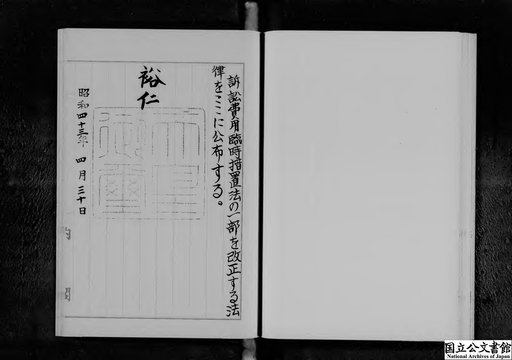 訴訟費用臨時措置法の一部を改正する法
律をここに公布する。
裕仁
昭和四十三年四月三十日
国立公文書館
National Archives of Japan